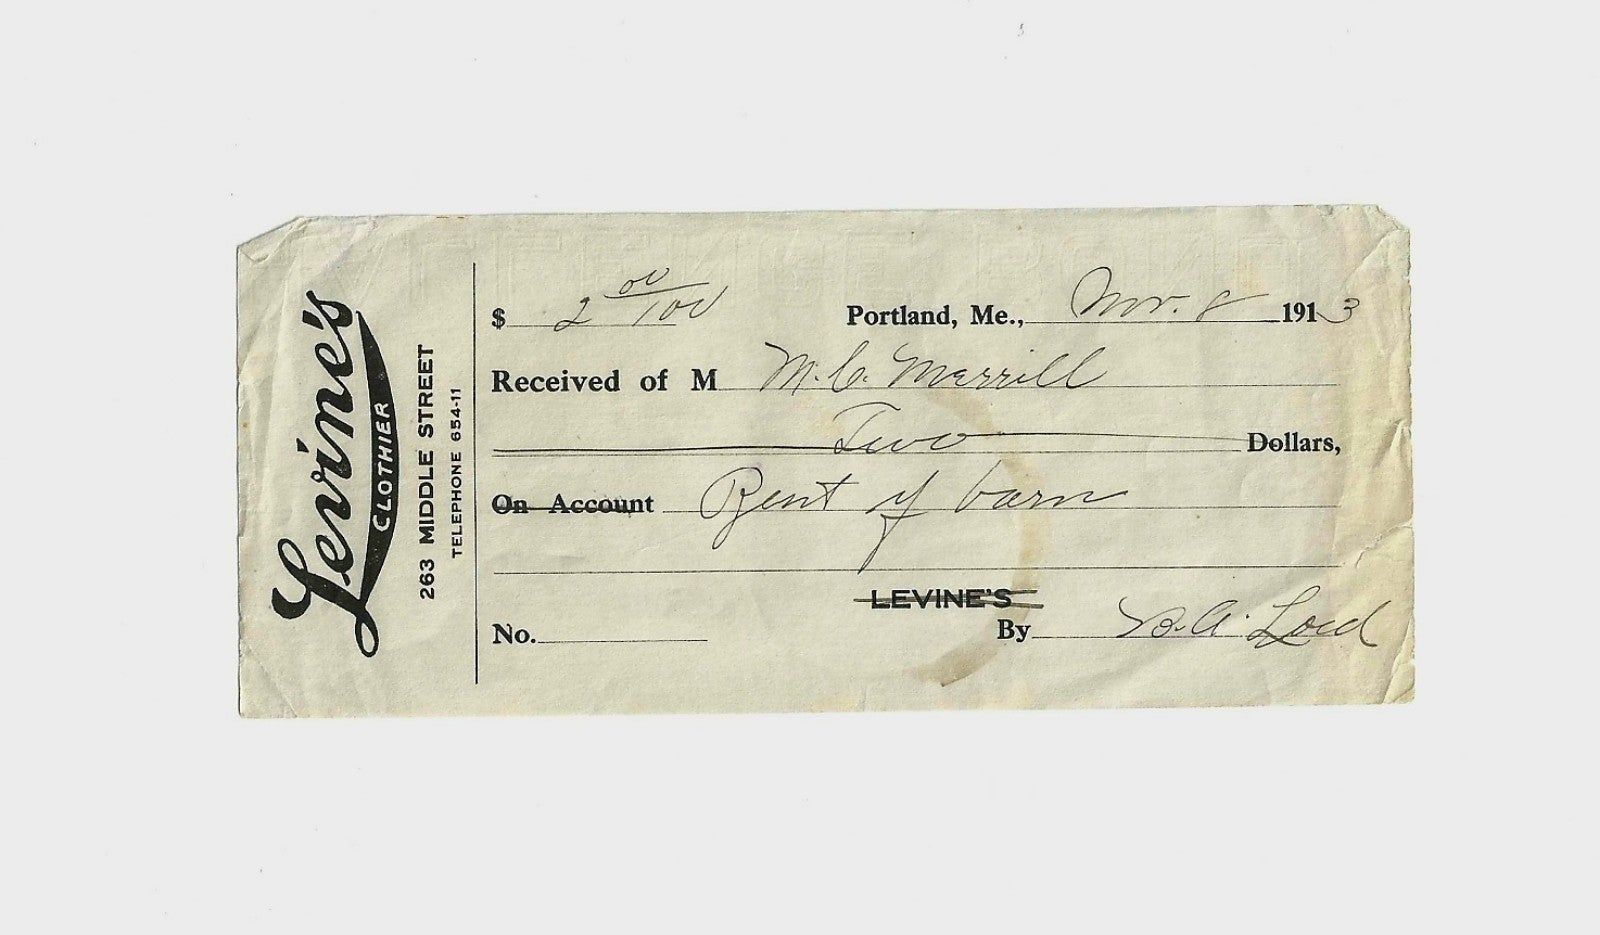 Levine's
CLOTHIER
263 MIDDLE STREET
TELEPHONE 654-11
$ 2 00/100 Portland, Me., Nov. 8 1913
Received of M M. C. Merrill
Two Dollars,
On Account Rent of barn
LEVINE'S
No. By A. Lord